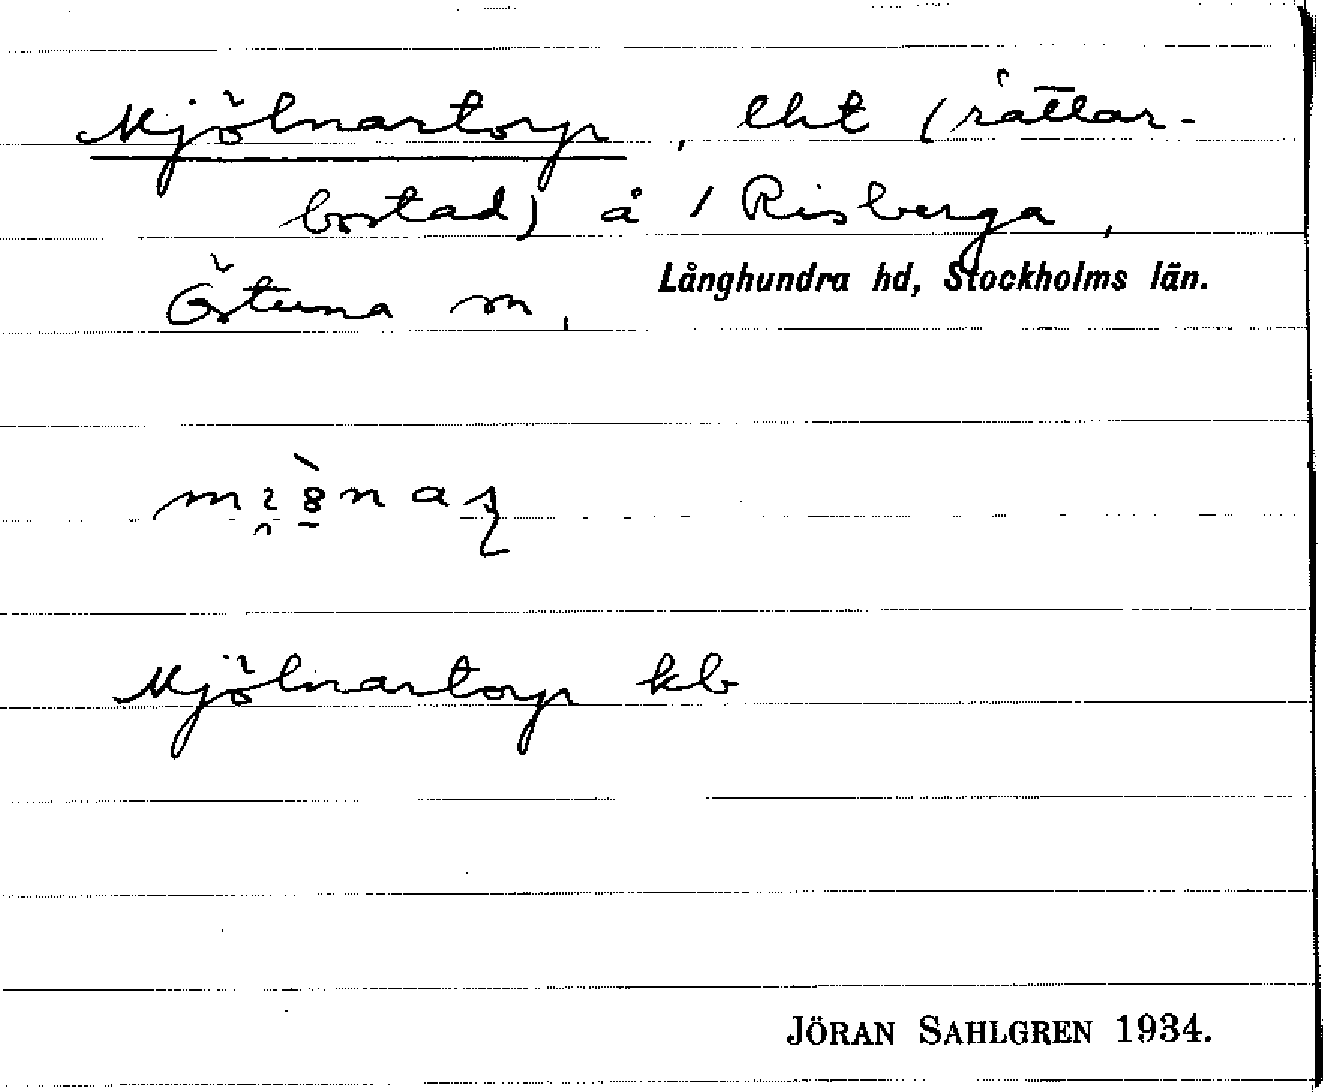 Mjölnartorp, lht (rättar-
bostad) å 1 Risberga,
Östuna sn, Långhundra hd, Stockholms län.
Mjölnartorp kb
JÖRAN SAHLGREN 1934.